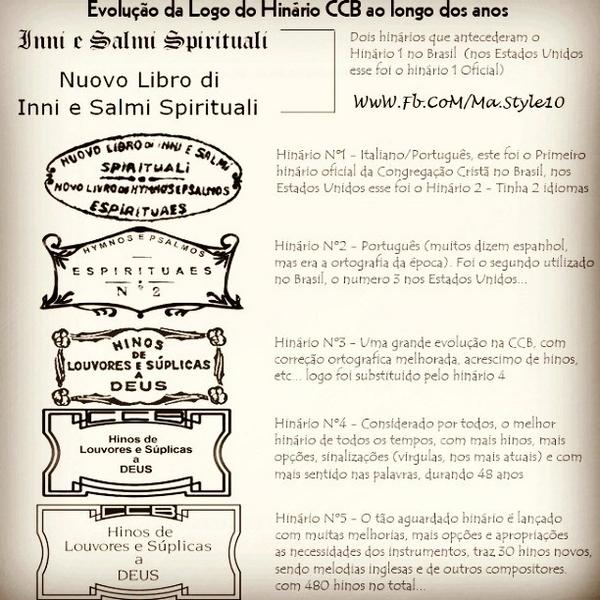 Evolução da Logo do Hinário CCB ao longo dos anos
Inni e Salmi Spirituali
Nuovo Libro di
Inni e Salmi Spirituali
Dois hinários que antecederam o
Hinário 1 no Brasil (nos Estados Unidos
esse foi o hinário 1 Oficial)
WwW.Fb.CoM/Ma.Style10
NUOVO LIBRO DI INNI E SALMI
SPIRITUALI
NOVO LIVRO DE HYMNOS E PSALMOS
ESPIRITUAES
Hinário Nº1 - Italiano/Português, este foi o Primeiro
hinário oficial da Congregação Cristã no Brasil, nos
Estados Unidos esse foi o Hinário 2 - Tinha 2 idiomas
HYMNOS E PSALMOS
ESPIRITUAES
Nº 2
Hinário Nº2 - Português (muitos dizem espanhol,
mas era a ortografia da época). Foi o segundo utilizado
no Brasil, o numero 3 nos Estados Unidos...
HINOS
DE
LOUVORES E SÚPLICAS
A
DEUS
Hinário Nº3 - Uma grande evolução na CCB, com
correção ortografica melhorada, acrescimo de hinos,
etc... logo foi substituido pelo hinário 4
CCB
Hinos de
Louvores e Súplicas
a
DEUS
Hinário Nº4 - Considerado por todos, o melhor
hinário de todos os tempos, com mais hinos, mais
opções, sinalizações (virgulas, nos mais atuais) e com
mais sentido nas palavras, durando 48 anos
CCB
Hinos de
Louvores e Súplicas
a
DEUS
Hinário Nº5 - O tão aguardado hinário é lançado
com muitas melhorias, mais opções e apropriações
as necessidades dos instrumentos, traz 30 hinos novos,
sendo melodias inglesas e de outros compositores.
com 480 hinos no total...